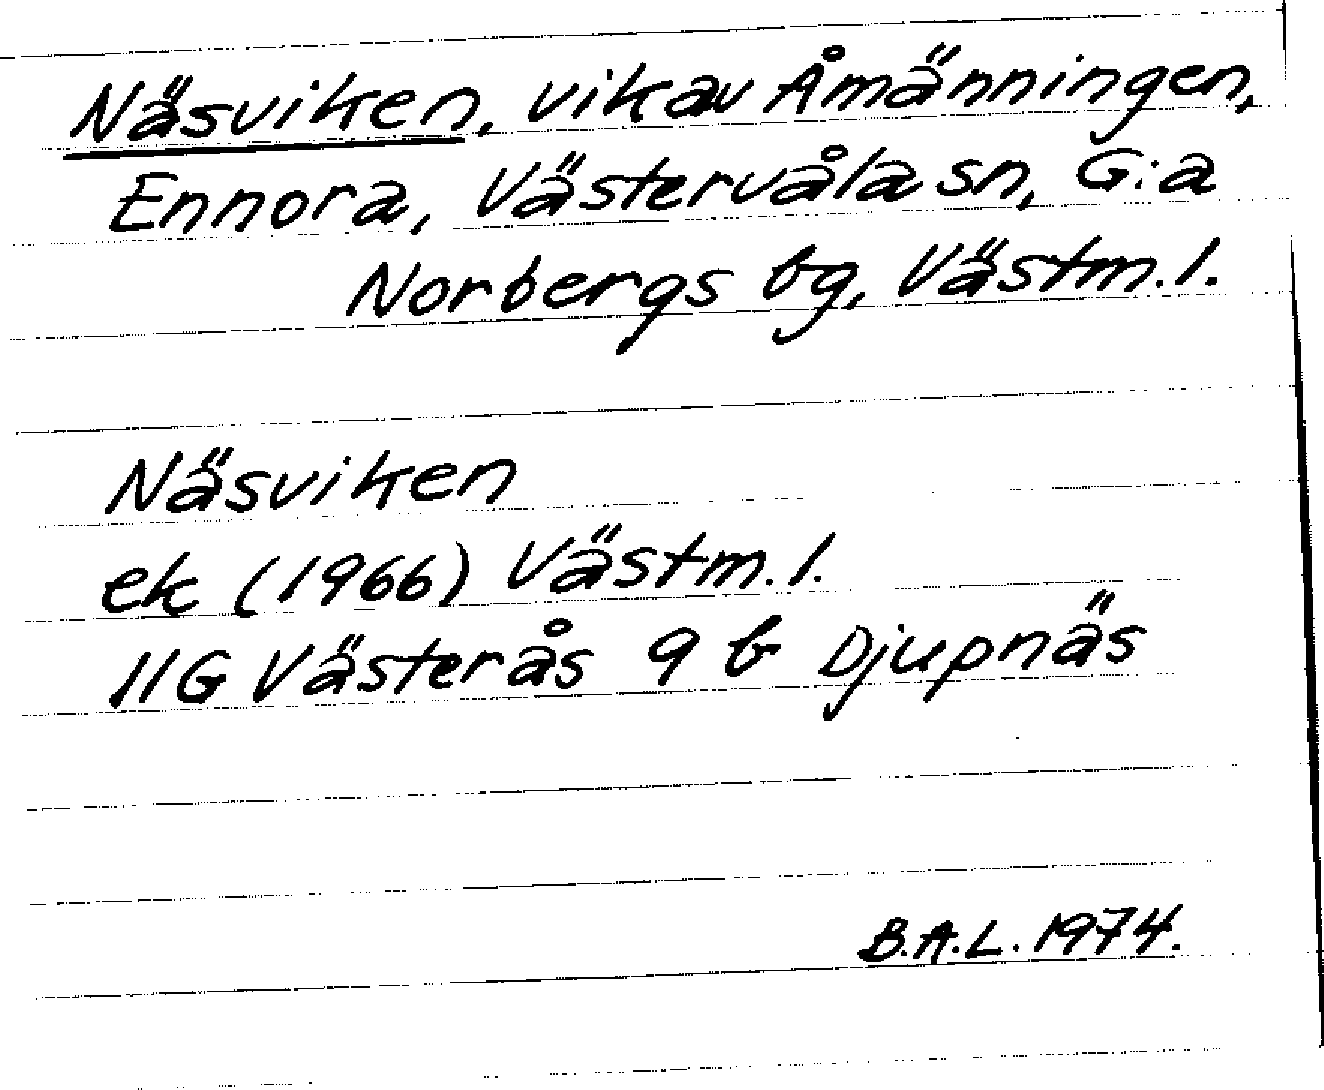 Näsviken, vik av Åmänningen,
Ennora, Västervåla sn, G:a
Norbergs bg, Västm.l.
Näsviken
ek (1966) Västm.l.
11G Västerås 9 b Djupnäs
B.A.L. 1974.